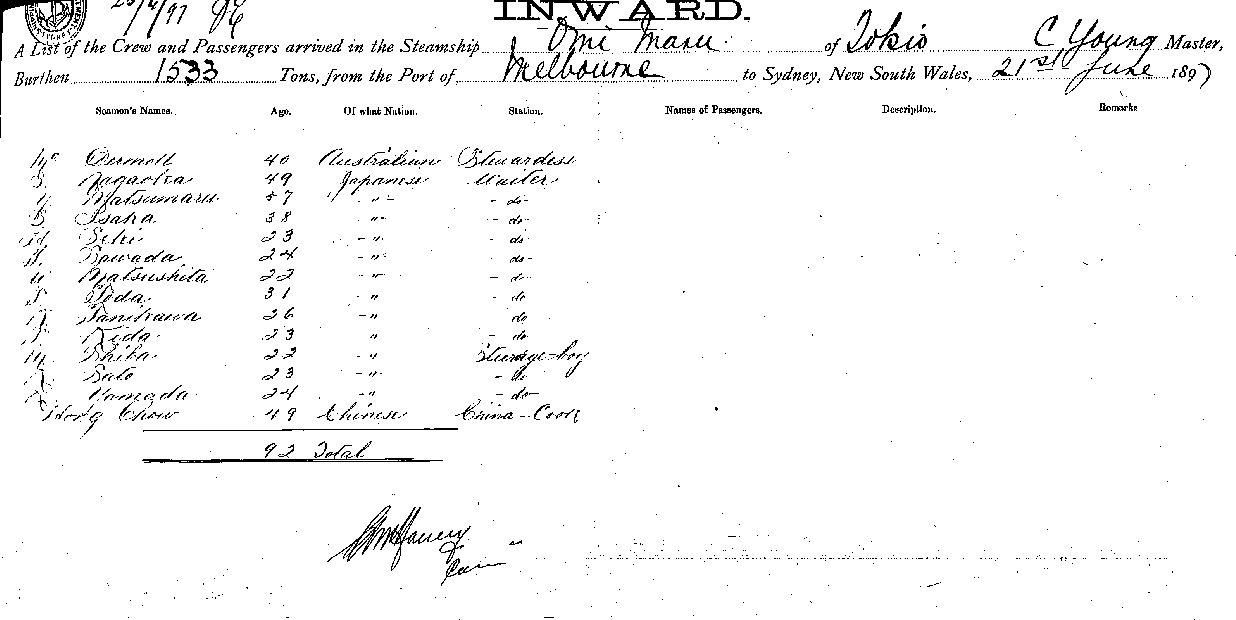 INWARD.
A List of the Crew and Passengers arrived in the Steamship Omi Maru of Tokio C Young Master,
Burthen 1533 Tons, from the Port of Melbourne to Sydney, New South Wales, 21st June 1897
Seamen's Names. Age. Of what Nation. Station. Names of Passengers. Description. Remarks
Dermott 40 Australian Stewardess
S. Nagaoka 49 Japanese Waiter
Y. Matsumaru 57 " - do
Isaka 38 - " - do
Seki 23 - " - do
Sawada 24 - " - do
Matsushita 22 - " - do
Toda 31 - " - do
Tanikawa 26 - " do
Kida 23 " - do
Shiba 22 - " Steerage-boy
Sato 23 - " - do
Yamada 24 - " - do
Hong Chow 49 Chinese China-Cook
92 Total